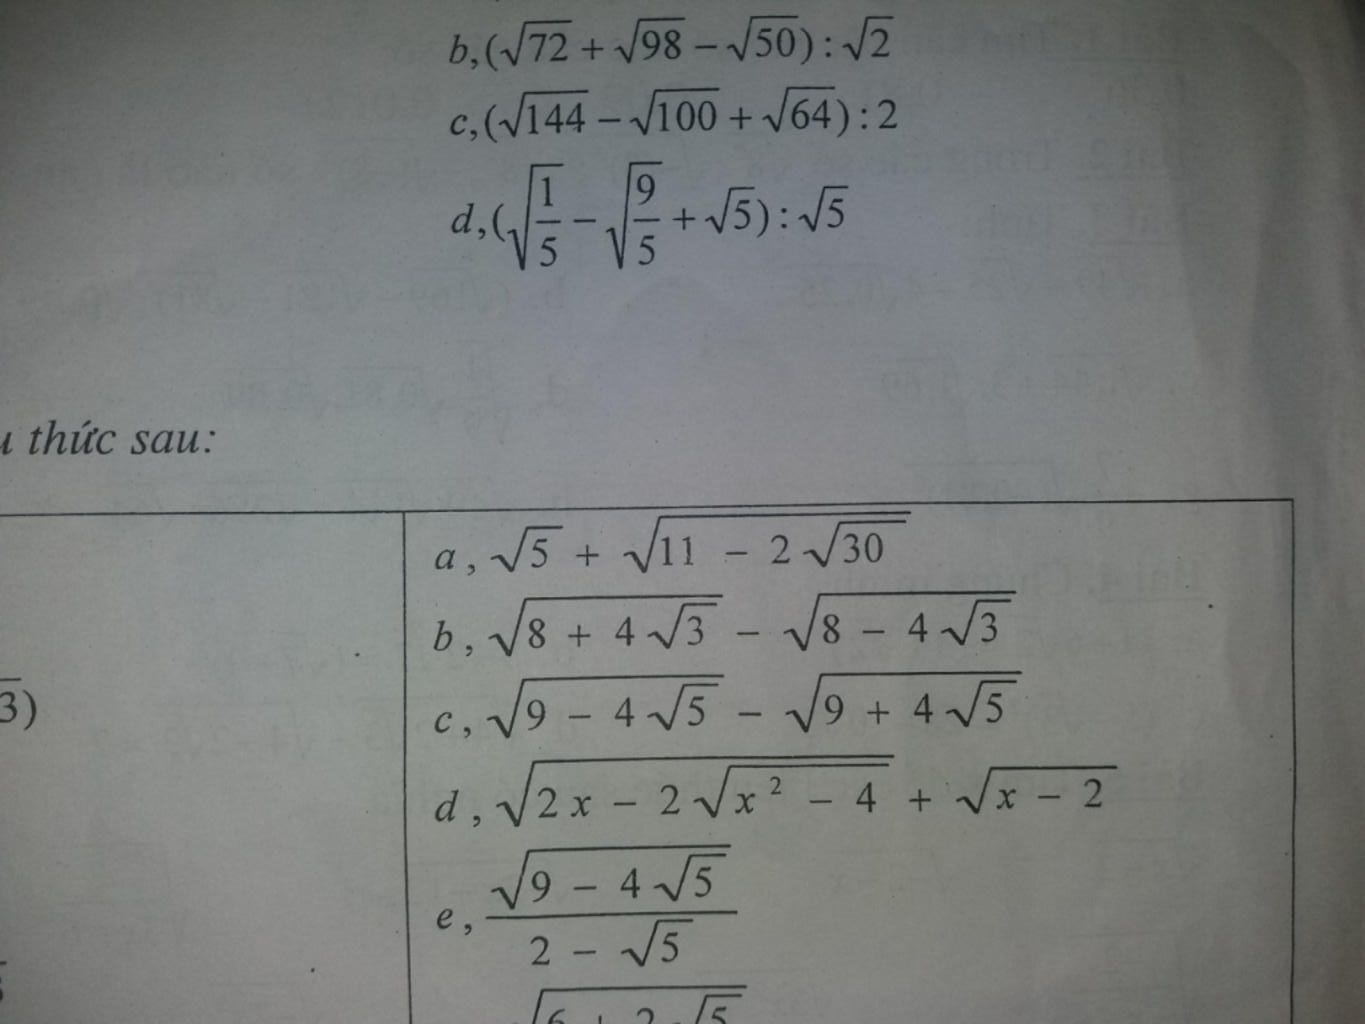 b,(√72 + √98 − √50) : √2
c,(√144 − √100 + √64) : 2
d,(√(1/5) − √(9/5) + √5) : √5
thức sau:
a, √5 + √(11 − 2√30)
b, √(8 + 4√3) − √(8 − 4√3)
c, √(9 − 4√5) − √(9 + 4√5)
3)
d, √(2x − 2√(x² − 4)) + √(x − 2)
e, √(9 − 4√5) / (2 − √5)
√(6 + 2√5)